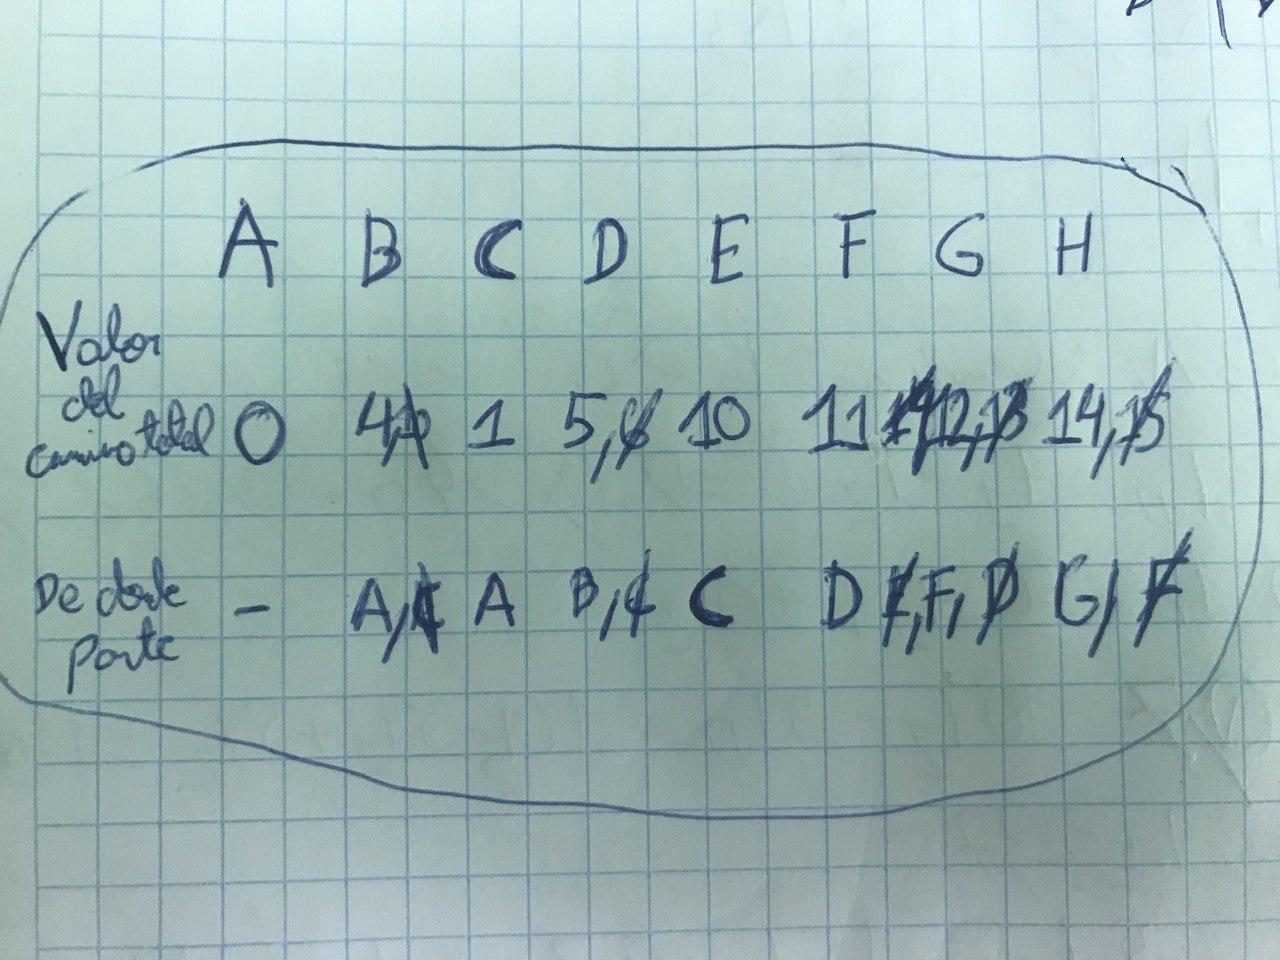 A B C D E F G H
Valor
del
camino total 0 4, 1 5,6 10 11 14 12,13 14,15
De donde - A,C A B,C C D E,F,D G, F
parte